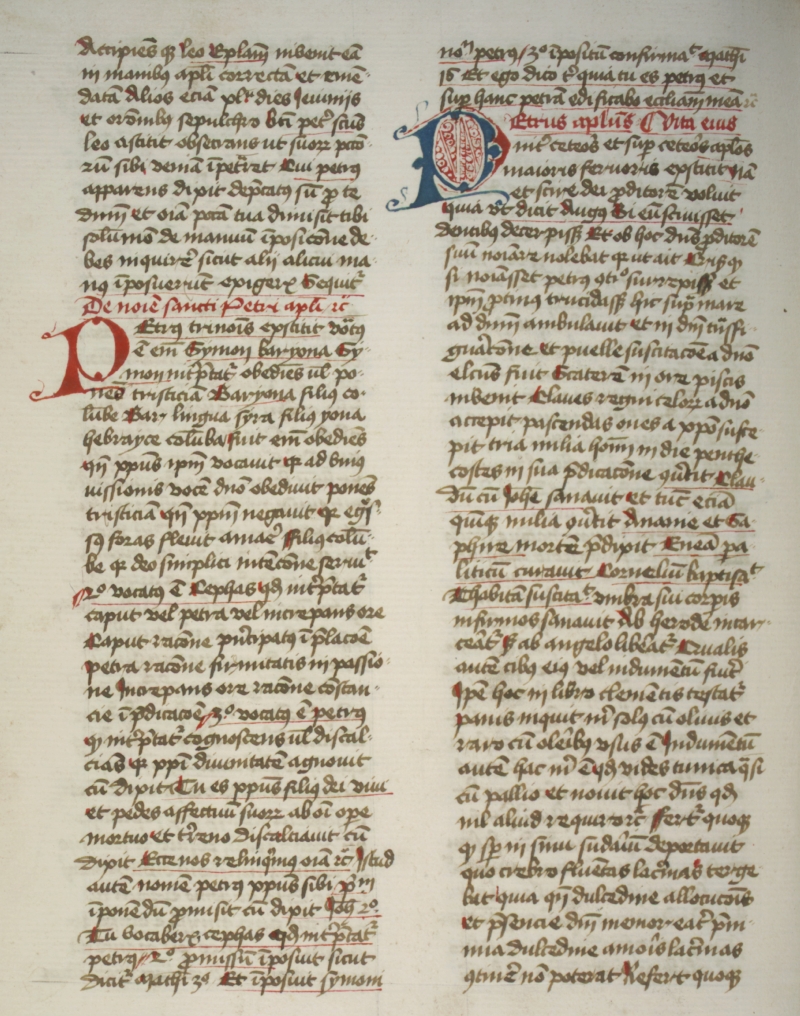 Accipiens q̃ leo ep̃lam̃ inuenit eã
in manibus apl̃i correctã et emẽ
datã Alios eciã plr̃ dies Ieiuniis
et or̃onibus sepulchro bt̃i pet͛ sc̃us
leo astitit obsecrans ut suorꝝ pcc̃o
rũ sibi veniã ĩpet͛ret Cui petrus
apparens dixit dep̃catus sũ ꝓ te
dnm̃ et oĩa pcc̃ta tua dimisit tibi
solũmo᷎ de manuũ ĩposic̃one de
bes inquirer̃ sicut alii alicui ma
nus ĩposuerũt exigerꝝ Sequit͛
De noĩe sancti Petri apl̃i rc̃
PEtrus trinoĩs exstitit voc̃tus
ẽ em̃ Symon baryona Sy
mon int͛p̃tat͛ obediẽs ul̃ po
nẽs tristiciã Baryona filius co
lũbe Bar lingua syra filius yona
hebrayce colũba fuit em̃ obediẽs
qñ xp̃us ip̃m vocauit qꝛ ad unius
iussionis vocẽ dño obediuit ponẽs
tristiciã qñ xp̃m negauit qꝛ egr̃s
sus foras fleuit amar̃ Filius colũ
be qꝛ deo simplici intẽc̃one seruit͛
2º vocatus ẽ Cephas qd̃ int͛p̃tat͛
caput vel petra vel increpans ore
Caput rac̃one pñcipatus ĩ p̃lac̃oẽ
petra rac̃one firmitatis in passio
ne Increpans ore rac̃one costan
cie ĩ p̃dicac̃oẽ 3º vocatus ẽ petrus
qͥ int͛p̃tat͛ cognoscens ul̃ discal
ciãs qꝛ xp̃i diuinitatẽ agnouit
cũ dixit Tu es xp̃us filius dei viui
et pedes affectuũ suorꝝ ab oĩ ope
mortuo et t͛reno discalciauit cũ
dixit Ecce nos relinq̃mus oĩa rc̃ Istud
autẽ nomen petrus xp̃us sibi pͥm̃
ĩponendũ ꝓmisit cũ dixit Joh̃ 2º
Tu vocaberꝝ cephas qd̃ int͛p̃tat͛
petrus 2º ꝓmissũ ĩposuit sicut
dicit͛ Mathi 3º Et ĩposuit symoni
nom̃ petrus 3º ĩpositũ confirmat͛ Mathi
16 Et ego dico tͥ quia tu es petrus et
suꝑ hanc petrã edificabo eccl̃iam̃ meã rc̃
PEtrus apl̃us Vita eius
int͛ cet͛os et suꝑ cet͛os apl̃os
maioris feruoris exstitit nã
et scire dei ꝓditorẽ voluit
quia vt dicit Augus Si eũ sciuisset
dentibus decerpisset Et ob hoc dñs ꝓditorẽ
suũ noĩare nolebat qꝛ ut ait Crisus
si noĩasset petrus 9tiº surrexisset et
ip̃m ꝓtinus trucidasset hic suꝑ mare
ad dnm̃ ambulauit et in dñi trñsfi
gurac̃one et puelle suscitac̃oẽ a dño
elc̃us fuit Staterẽ in ore piscis
inuenit Claues regni celorꝝ a dño
accepit pascendas oues a xp̃o susce
pit tria milia hom̃ in die penthe
costes in sua p̃dicac̃one 9u͛tit Clau
dũ cũ Joh̃e sanauit et tũc eciã
quinqꝫ milia 9u͛tit Ananie et Sa
phire mortẽ p̃dixit Eneã pa
liticũ curauit Corneliũ baptisat͛
Thabitã suscitat͛ vmbra sui corp̃is
infirmos sanauit Ab herode incar
ceat͛ s᷎ ab angelo liberat͛ Qualis
autẽ cibus eius vel indumentũ fuit
Ip̃e hoc in libro clementis testat͛
panis inquit mͥ solus cũ oliuis et
raro cũ olerĩbus vsus ẽ Indumentũ
autẽ hac mͥ ẽ qd̃ vides tunica q̃si
cũ pallio et nouit hoc dñs qd̃
nil aliud requirorc̃ Fert͛ quoqꝫ
qͥ sꝑ in sinu sudariũ deportauit
quo crebro fluentes lac͛mas terge
bat quia qñ dulcedine allocucõis
et p̃sencie dñi memor erat p̃ni
mia dulcedine amoris lac͛mas
9tiner̃ nõ poterat Refert quoqꝫ